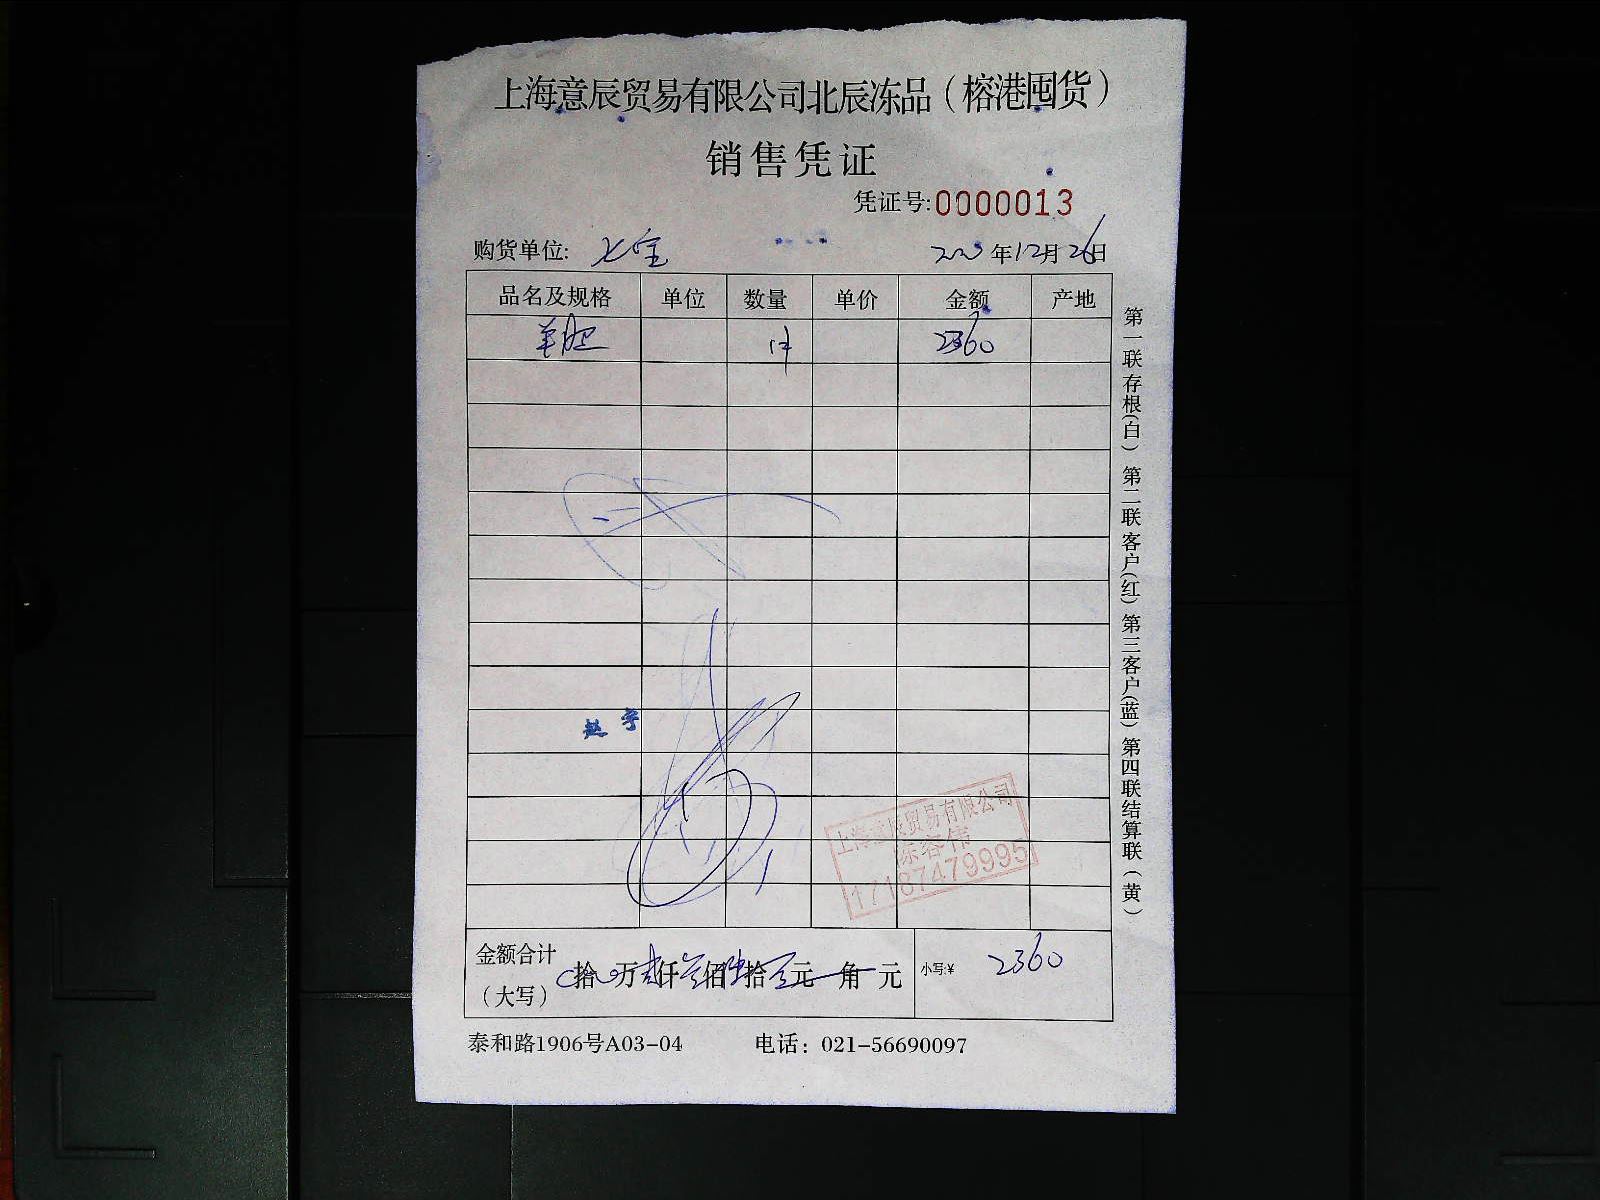 上海意辰贸易有限公司北辰冻品（榕港囤货）
销售凭证
凭证号:0000013
购货单位: 七宝
2020年12月26日
品名及规格 单位 数量 单价 金额 产地
羊肥 2360
赵宇
上海意辰贸易有限公司
陈容伟
17187479995
金额合计（大写） 拾 万 贰仟叁佰陆拾 元 角 元 小写:¥ 2360
泰和路1906号A03-04 电话：021-56690097
第一联存根(白) 第二联客户(红) 第三客户(蓝) 第四联结算联（黄）